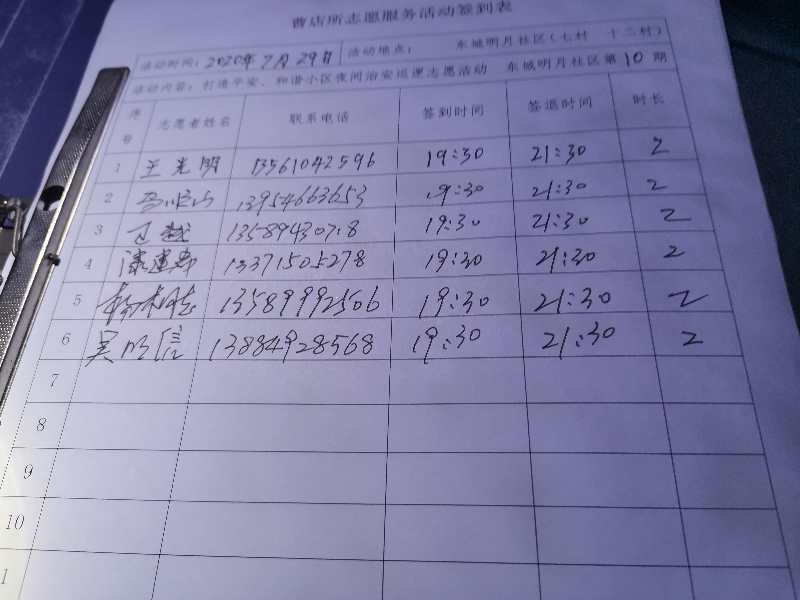 曹店所志愿服务活动签到表
活动时间：2020年7月29日 活动地点： 东城明月社区(七村 十二村)
活动内容：打造平安、和谐小区夜间治安巡逻志愿活动 东城明月社区第10期
序号 志愿者姓名 联系电话 签到时间 签退时间 时长
1 王光明 13561042596 19:30 21:30 2
2 13954663653 19:30 21:30 2
3 19:30 21:30 2
4 13371505278 19:30 21:30 2
5 13589992506 19:30 21:30 2
6 吴明信 13884928568 19:30 21:30 2
7
8
9
10
1